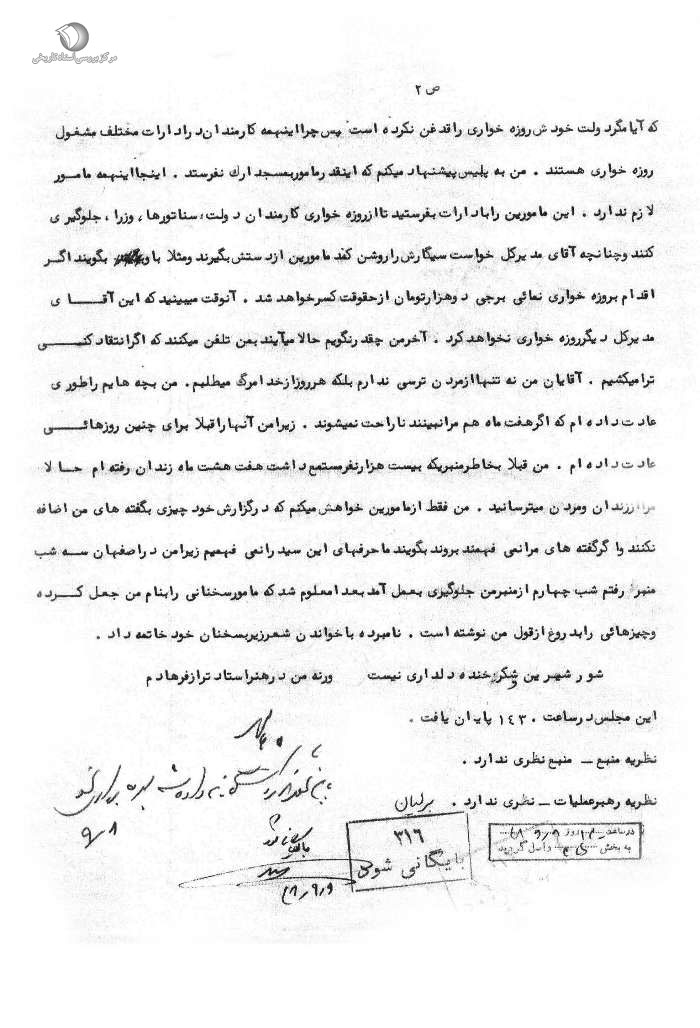 مرکز بررسی اسناد تاریخی
ص ۲
که آیا مگر دولت خودش روزه خواری را قدغن نکرده است پس چرا اینهمه کارمندان در ادارات مختلف مشغول
روزه خواری هستند . من به پلیس پیشنهاد میکنم که اینقدر مامور بمسجد ارك نفرستد . اینجا اینهمه مامور
لازم ندارد . این مامورین را بادارات بفرستید تا از روزه خواری کارمندان دولت، سناتورها ، وزرا ، جلوگیری
کنند و چنانچه آقای مدیرکل خواست سیگارش را روشن کند مامورین از دستش بگیرند و مثلا باو بگویند اگر
اقدام بروزه خواری نمائی برجی دو هزار تومان از حقوقت کسر خواهد شد . آنوقت میبینید که این آقای
مدیرکل دیگر روزه خواری نخواهد کرد . آخر من چقدر نگویم حالا میآیند بمن تلفن میکنند که اگر انتقاد کنی
ترا میکشیم . آقایان من نه تنها از مردن ترسی ندارم بلکه هر روز از خدا مرگ میطلبم . من بچه هایم را طوری
عادت داده ام که اگر هفت ماه هم مرا نبینند ناراحت نمیشوند . زیرا من آنها را قبلا برای چنین روزهائی
عادت داده ام . من قبلا بخاطر منبریکه بیست هزار نفر مستمع داشت هفت هشت ماه زندان رفته ام حالا
مرا از زندان و مردن میترسانید . من فقط از مامورین خواهش میکنم که در گزارش خود چیزی بگفته های من اضافه
نکنند و اگر گفته های مرا نمی فهمند بروند بگویند ما حرفهای این سید را نمی فهمیم زیرا من در اصفهان سه شب
منبر رفتم شب چهارم از منبر من جلوگیری بعمل آمد بعدا معلوم شد که مامور سخنانی را بنام من جعل کرده
و چیزهائی را بدروغ از قول من نوشته است . نامبرده با خواندن شعر زیر بسخنان خود خاتمه داد .
شور شیرین و شکر خنده دلداری نیست ورنه من در هنر استادتر از فرهادم
این مجلس در ساعت ۱۴۳۰ پایان یافت .
نظریه منبع ــ منبع نظری ندارد .
نظریه رهبر عملیات ــ نظری ندارد . برلیان
۳۱۶
بایگانی شود
در ساعت روز
به بخش واصل گردید
۴۸/۹/۹